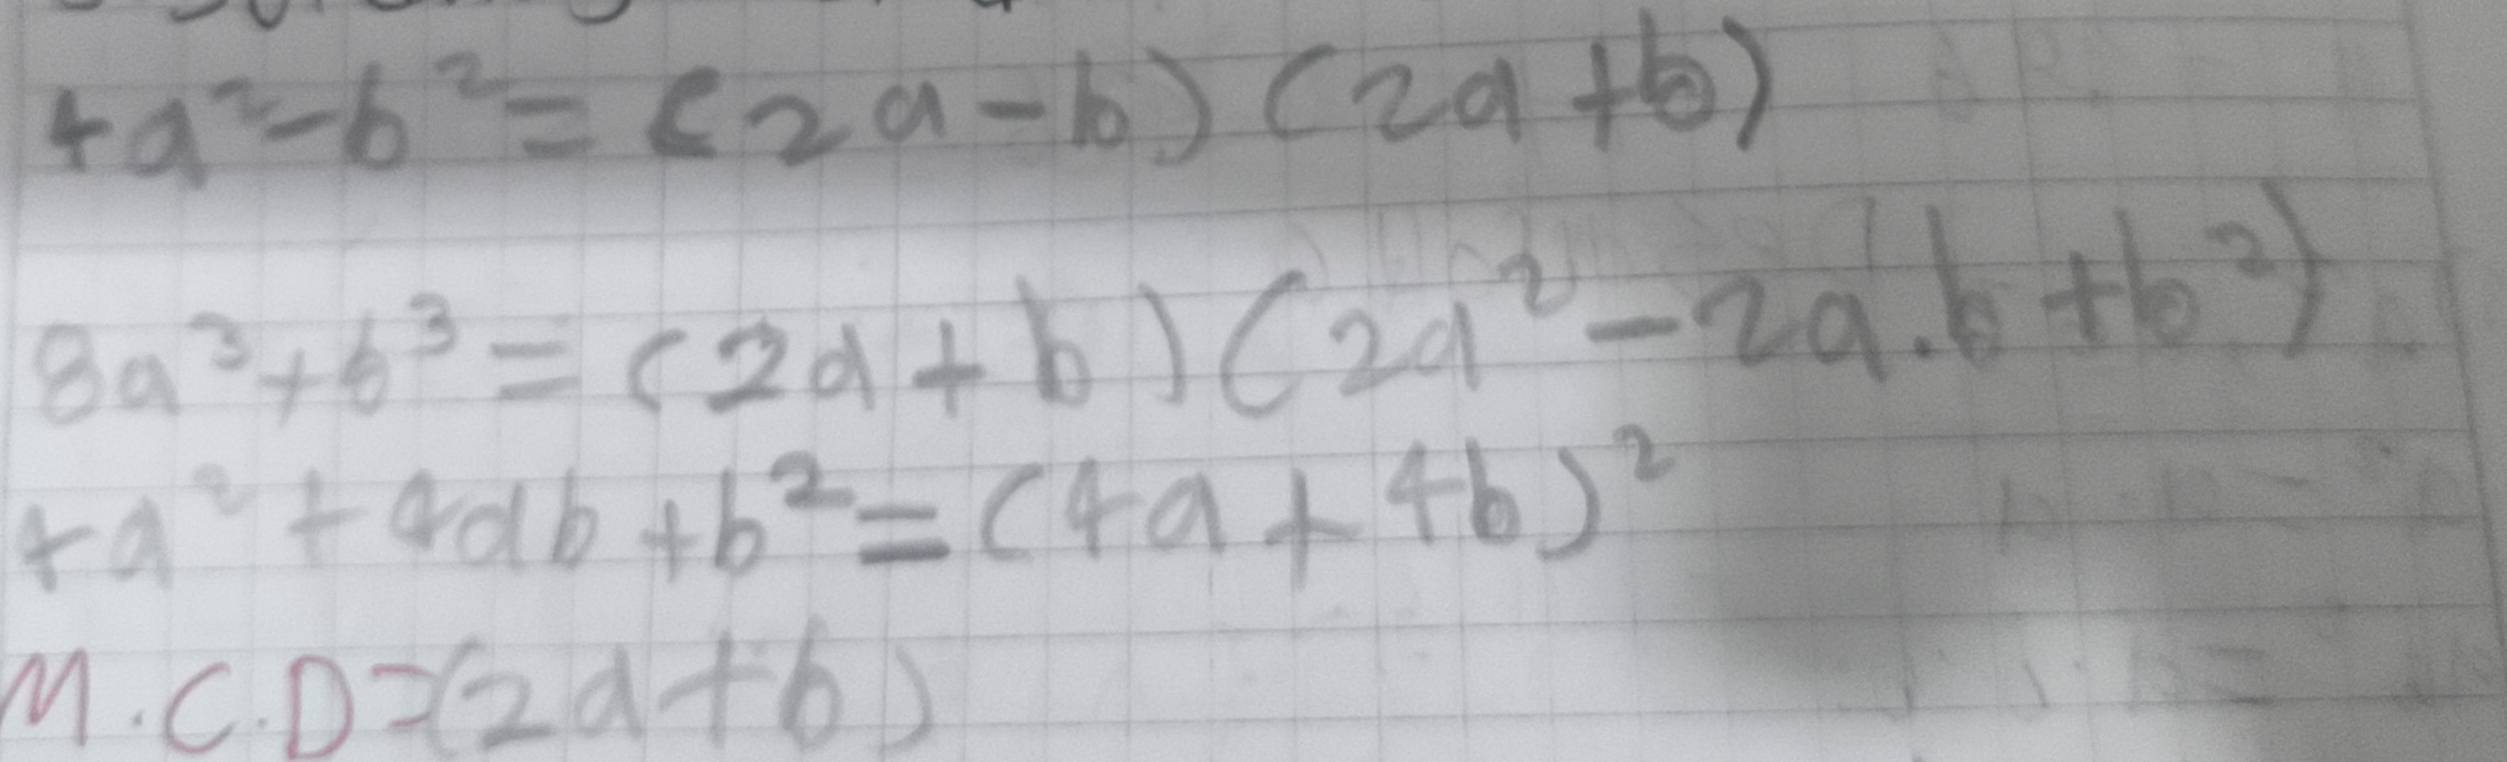 4a²-b² = (2a-b) (2a+b)
8a³+b³ = (2a+b) (2a²-2a.b+b²)
4a²+4ab+b² = (4a+4b)²
M.C.D=(2a+b)